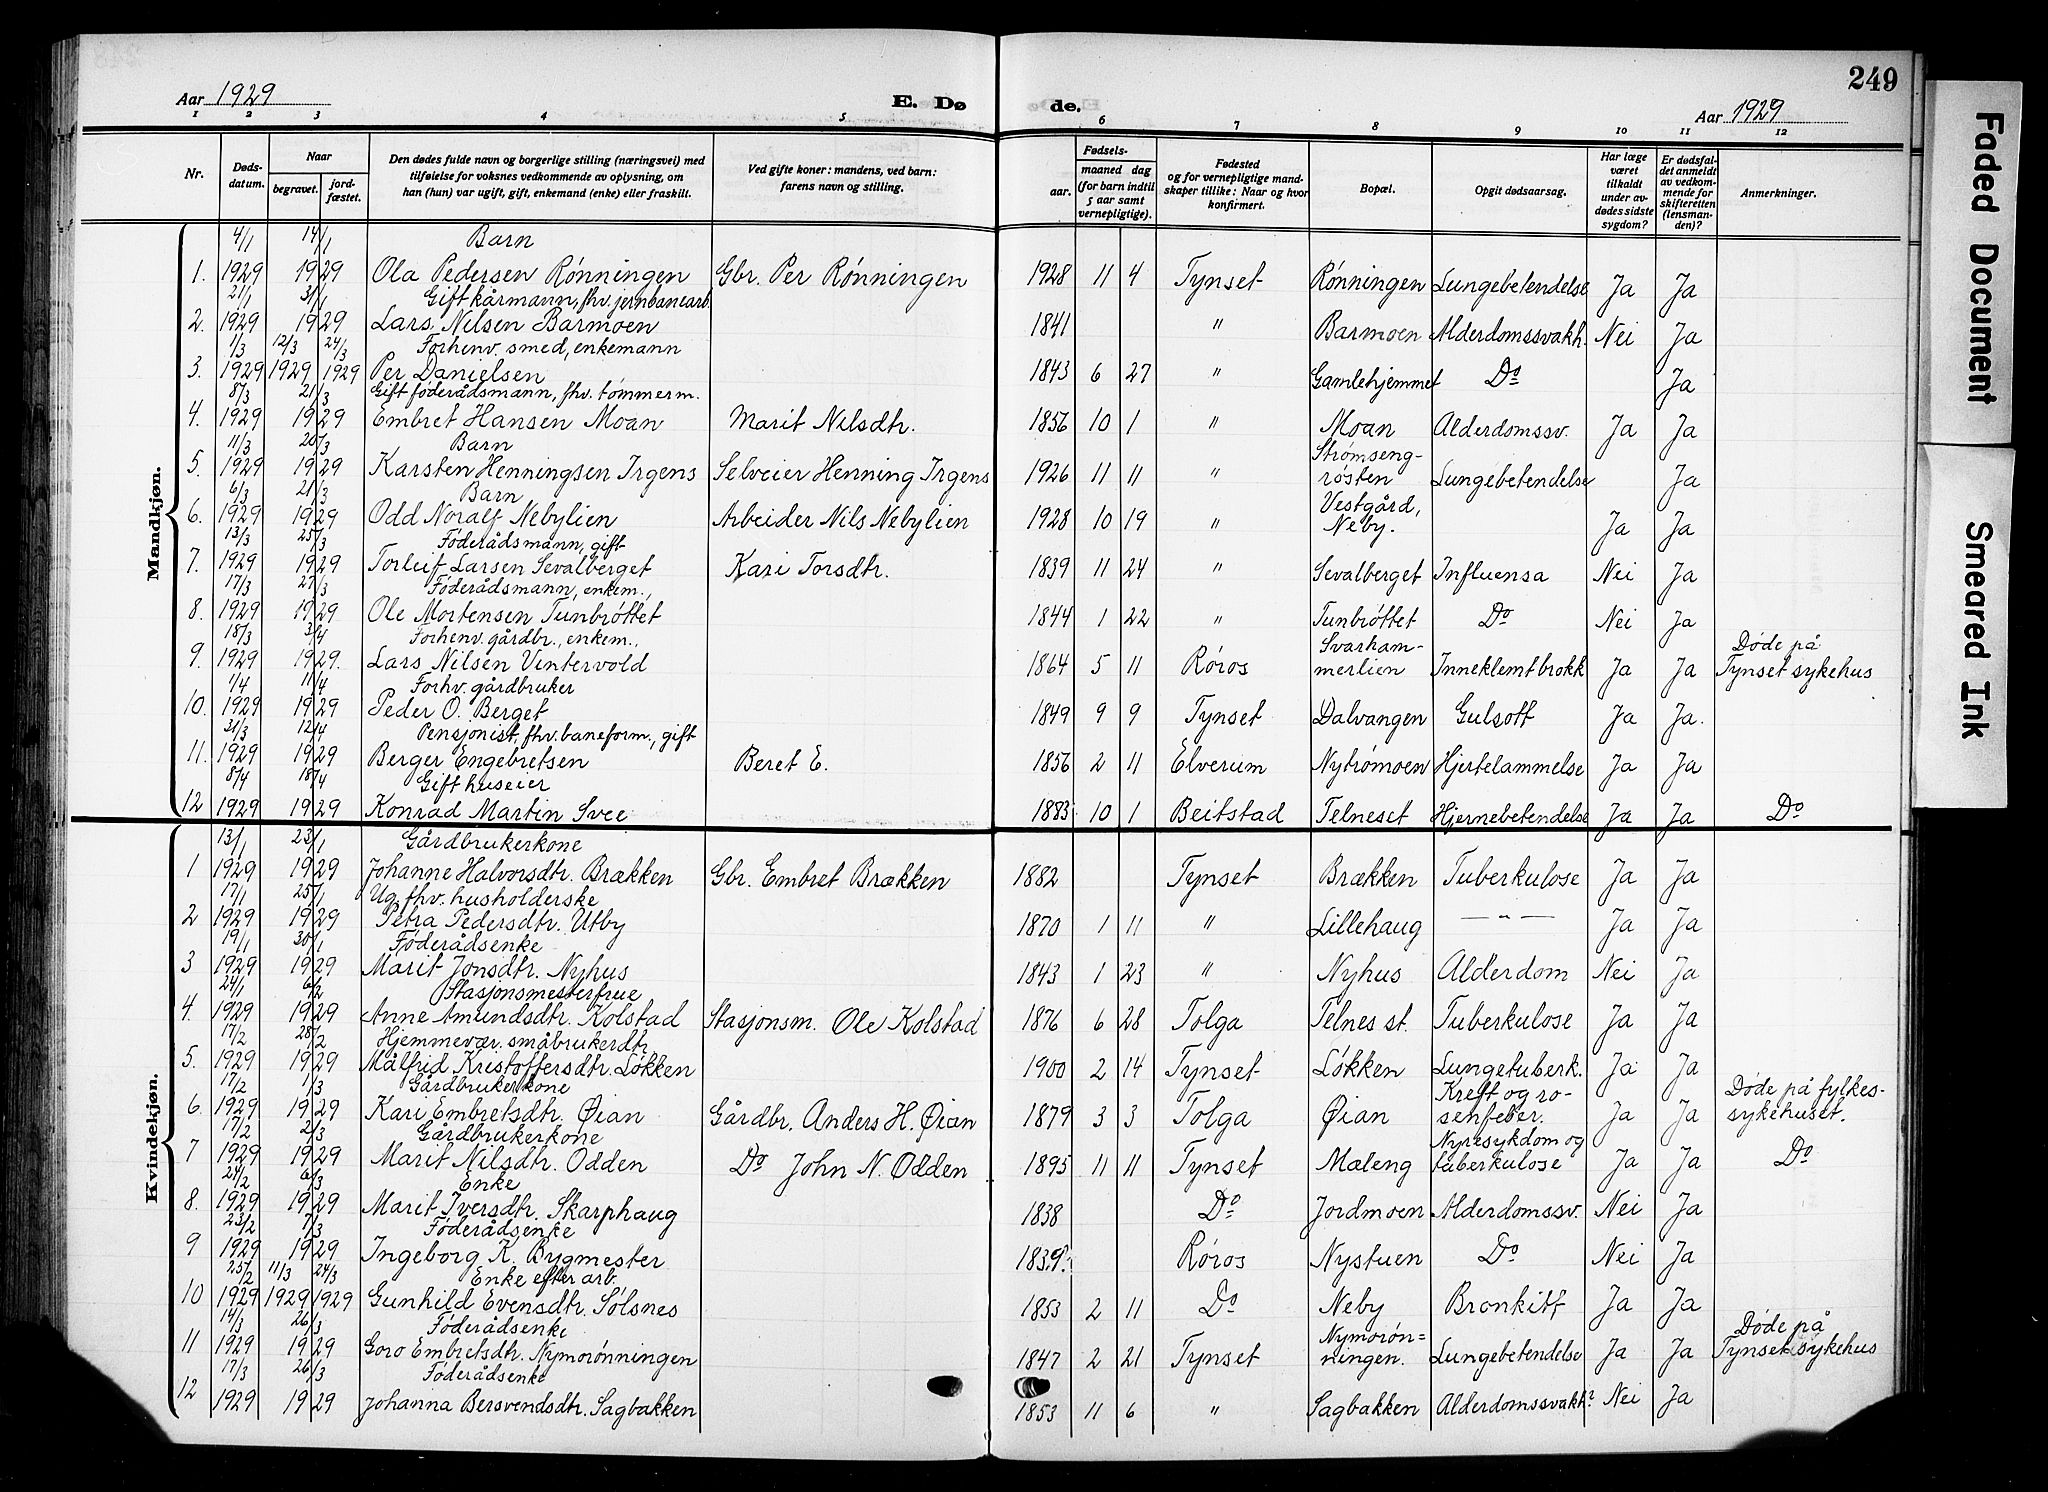 Aar 1929 E. Døde. Aar 1929 249
1 2 3 4 5 6 7 8 9 10 11 12
Nr. Døds-datum. Naar begravet. jord-fæstet. Den dødes fulde navn og borgerlige stilling (næringsvei) med tilføielse for voksnes vedkommende av oplysning, om han (hun) var ugift, gift, enkemand (enke) eller fraskilt. Ved gifte koner: mandens, ved barn: farens navn og stilling. Fødsels- aar. maaned dag (for barn indtil 5 aar samt vernepligtige). Fødested og for vernepligtige mandskaper tillike: Naar og hvor konfirmert. Bopæl. Opgit dødsaarsag. Har læge været tilkaldt under avdødes sidste sygdom? Er dødsfaldet anmeldt av vedkommende for skifteretten (lensmanden)? Anmerkninger.
Mandkjøn.
4/1 14/1 Barn
1. 1929 1929 Ola Pedersen Rønningen Gbr. Per Rønningen 1928 11 4 Tynset Rønningen Lungebetendelse Ja Ja
21/1 31/1 Gift kårmann, fhv. jernbanearb.
2. 1929 1929 Lars Nilsen Barmoen 1841 " Barmoen Alderdomssvakh. Nei Ja
1/3 12/3 24/3 Forhenv. smed, enkemann
3. 1929 1929 1929 Per Danielsen 1843 6 27 " Gamlehjemmet Do Ja
8/3 21/3 Gift føderådsmann, fhv. tømmerm.
4. 1929 1929 Embret Hansen Moan Marit Nilsdtr. 1856 10 1 " Moan Alderdomssv. Ja Ja
11/3 20/3 Barn Strømseng-
5. 1929 1929 Karsten Henningsen Irgens Selveier Henning Irgens 1926 11 11 " røsten Lungebetendelse Ja
6/3 21/3 Barn Vestgård,
6. 1929 1929 Odd Noralf Nebylien Arbeider Nils Nebylien 1928 10 19 " Neby. Ja Ja
13/3 25/3 Føderådsmann, gift
7. 1929 1929 Torleif Larsen Sevalberget Kari Torsdtr. 1839 11 24 " Sevalberget Influensa Nei Ja
17/3 27/3 Føderådsmann, enkem.,
8. 1929 1929 Ole Mortensen Tunbrøttet 1844 1 22 " Tunbrøttet Do Nei Ja
18/3 3/4 Forhenv. gårdbr., enkem.. Svarham- Døde på
9. 1929 1929. Lars Nilsen Vintervold 1864 5 11 Røros merlien Inneklemt brokk Ja Ja Tynset sykehus
1/4 11/4 Forhv. gårdbruker
10. 1929 1929 Peder O. Berget 1849 9 9 Tynset Dalvangen Gulsott Ja Ja.
31/3 12/4 Pensjonist, fhv. baneform., gift
11. 1929 1929 Berger Engebretsen Beret E. 1856 2 11 Elverum Nytrømoen Hjertelammelse Ja Ja
8/4 18/4 Gift huseier
12 1929 1929 Konrad Martin Svee 1883 10 1 Beitstad Telneset Hjernebetendelse Ja Ja Do
Kvindekjøn.
13/1 23/1 Gårdbrukerkone
1 1929 1929 Johanne Halvorsdtr. Brækken Gbr. Embret Brækken 1882 Tynset Brækken Tuberkulose Ja Ja
17/1 25/1 Ug. fhv. husholderske
2 1929 1929 Petra Pedersdtr. Utby 1870 1 11 " Lillehaug —"— Ja Ja
19/1 30/1 Føderådsenke
3 1929 1929 Marit Jonsdtr. Nyhus 1843 1 23 " Nyhus Alderdom Nei Ja
24/1 6/2 Stasjonsmesterfrue
4. 1929 1929 Anne Amundsdtr. Kolstad Stasjonsm. Ole Kolstad 1876 6 28 Tolga Telnes st. Tuberkulose Ja Ja
17/2 28/2 Hjemmevær. småbrukerdtr.
5. 1929 1929 Målfrid Kristoffersdtr. Løkken 1900 2 14 Tynset Løkken Lungetuberk. Ja Ja
17/2 1/3 Gårdbrukerkone Kreft og ro- Døde på fylkes-
6. 1929 1929 Kari Embretsdtr. Øian Gårdbr. Anders H. Øian 1879 3 3 Tolga Øian senfeber. Ja Ja sykehuset.
17/2 2/3 Gårdbrukerkone Nyresykdom og
7 1929 1929 Marit Nilsdtr. Odden Do John N. Odden 1895 11 11 Tynset Mæleng tuberkulose Ja Ja Do
21/2 6/3 Enke
8. 1929 1929 Marit Iversdtr. Skarphaug 1838 Do Jordmoen Alderdomssv. Nei Ja
23/2 7/3 Føderådsenke
9 1929 1929 Ingeborg K. Bygmester 1839. Røros Nystuen Do Nei Ja
25/2 11/3 24/3 Enke efter arb.
10 1929 1929 1929 Gunhild Evensdtr. Sølsnes 1853 2 11 Do Neby Bronkitt Ja Ja
14/3 26/3 Føderådsenke Nymorøn= Døde på
11 1929 1929 Goro Embretsdtr. Nymorønningen 1847 2 21 Tynset ningen. Lungebetendelse Ja Ja Tynset sykehus
17/3 26/3 Føderådsenke
12 1929 1929 Johanna Bersvendsdtr. Sagbakken 1853 11 6 " Sagbakken Alderdomssvakh? Nei Ja
Faded Document
Smeared Ink